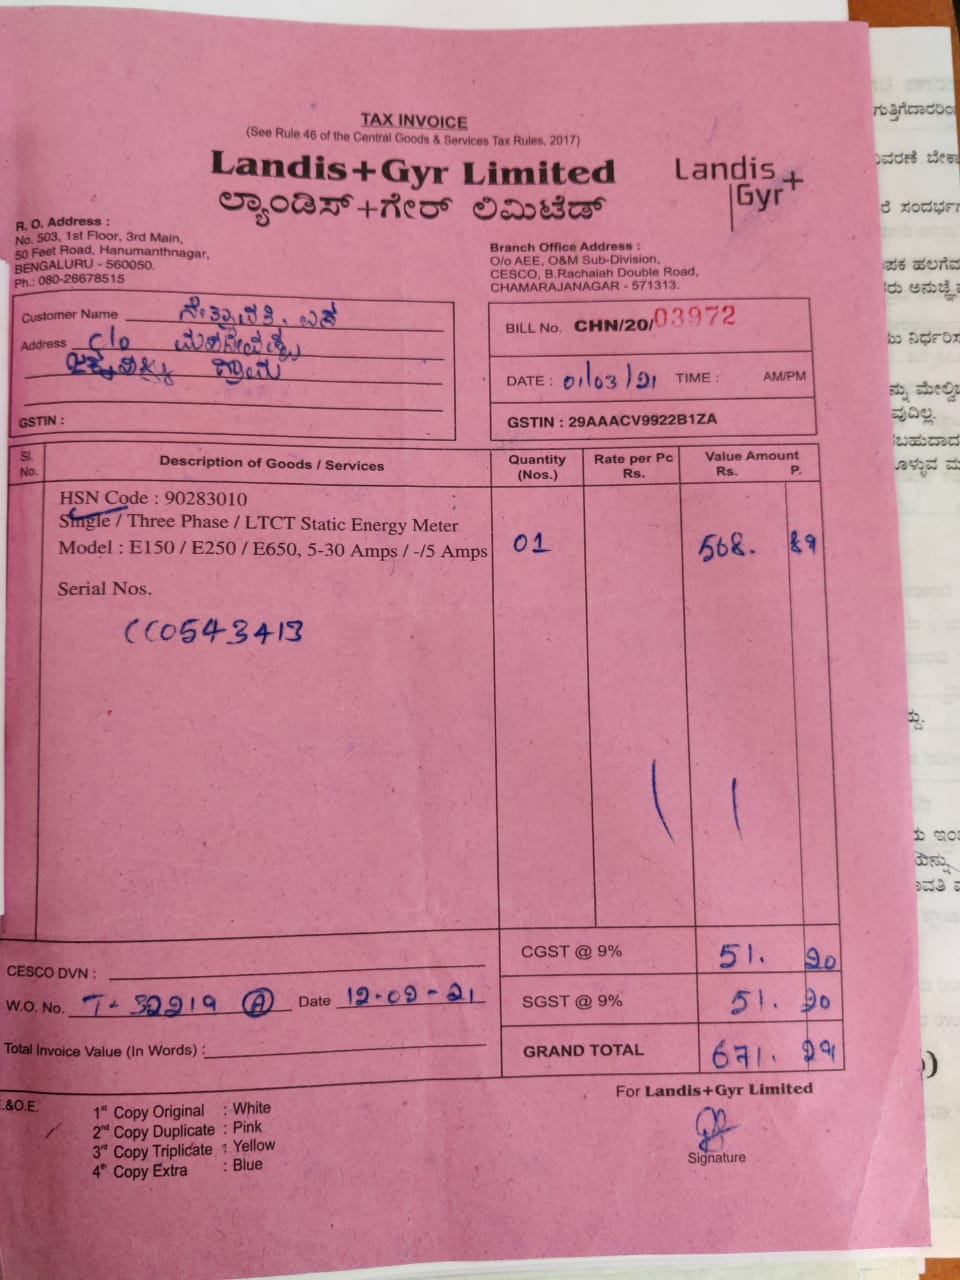 TAX INVOICE
(See Rule 46 of the Central Goods & Services Tax Rules, 2017)
Landis+Gyr Limited
ಲ್ಯಾಂಡಿಸ್+ಗೇರ್ ಲಿಮಿಟೆಡ್
Landis
Gyr+
R. O. Address :
No. 503, 1st Floor, 3rd Main,
50 Feet Road, Hanumanthnagar,
BENGALURU - 560050.
Ph.: 080-26678515
Branch Office Address :
O/o AEE, O&M Sub-Division,
CESCO, B.Rachaiah Double Road,
CHAMARAJANAGAR - 571313.
Customer Name
Address C/o
GSTIN :
BILL No. CHN/20/03972
DATE : 01/03/21 TIME : AM/PM
GSTIN : 29AAACV9922B1ZA
Sl. No. Description of Goods / Services Quantity (Nos.) Rate per Pc Rs. Value Amount Rs. P.
HSN Code : 90283010
Single / Three Phase / LTCT Static Energy Meter
Model : E150 / E250 / E650, 5-30 Amps / -/5 Amps 01 568. 89
Serial Nos.
CC0543413
CGST @ 9% 51. 20
CESCO DVN :
SGST @ 9% 51. 20
W.O. No. T- 32219 (A) Date 12-02-21
Total Invoice Value (In Words) :
GRAND TOTAL 671. 29
For Landis+Gyr Limited
Signature
.&O.E.
1st Copy Original : White
2nd Copy Duplicate : Pink
3rd Copy Triplicate : Yellow
4th Copy Extra : Blue